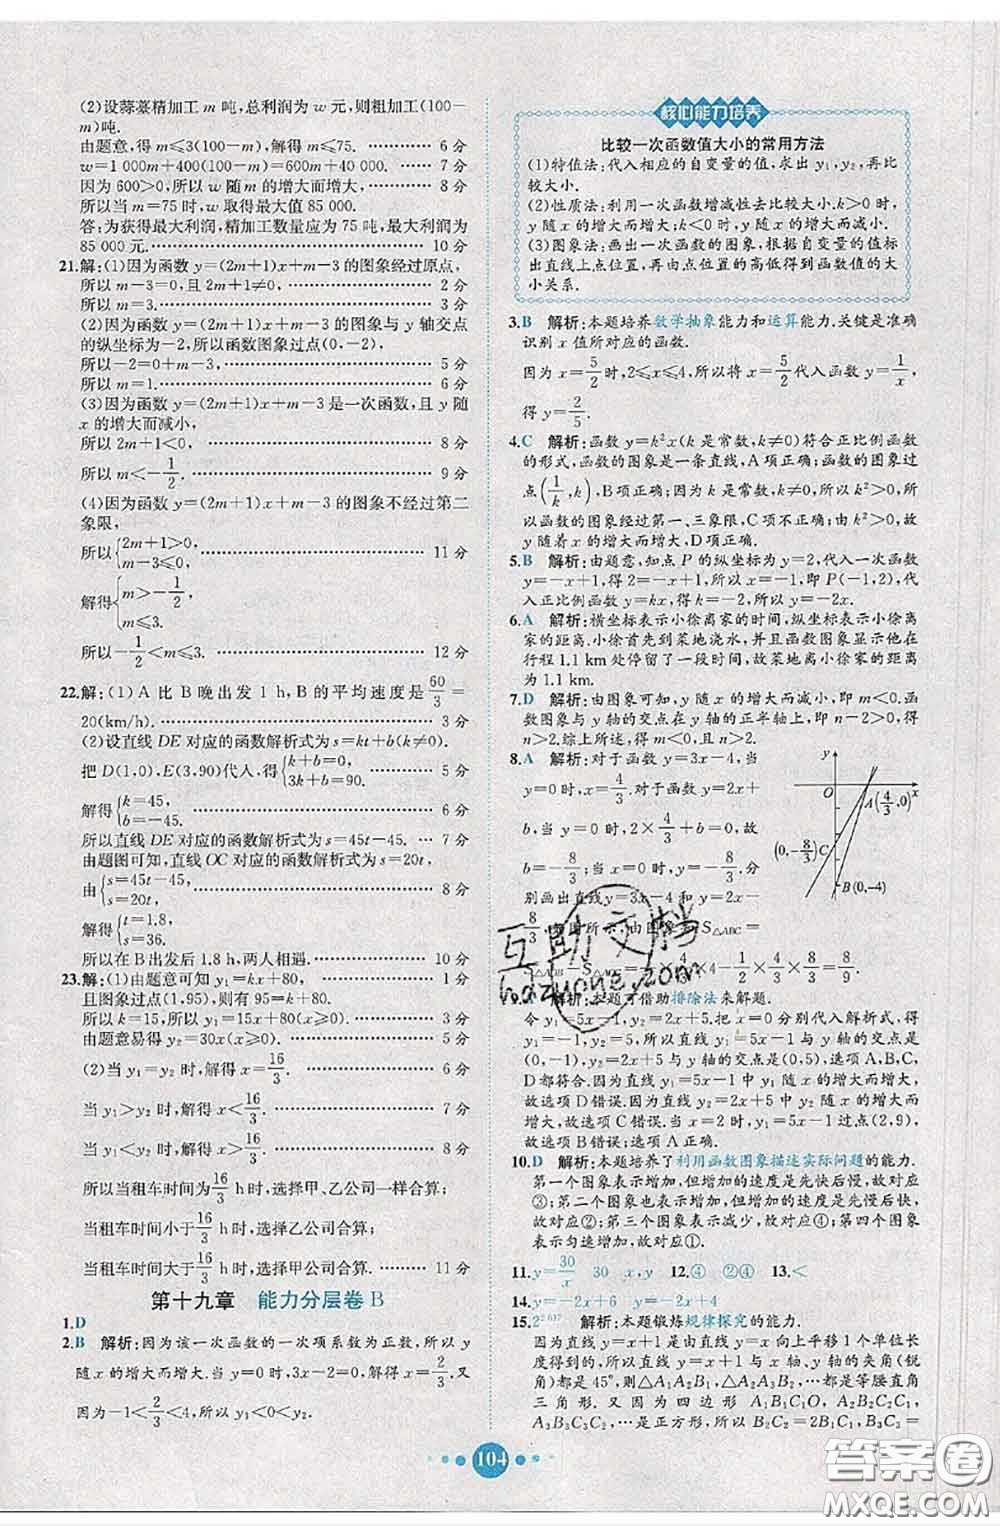 (2)设蒜薹精加工 m 吨,总利润为 w 元,则粗加工(100-
m)吨.
由题意,得 m≤3(100-m),解得 m≤75. 6 分
w=1 000m+400(100-m)=600m+40 000. 7 分
因为 600>0,所以 w 随 m 的增大而增大, 8 分
所以当 m=75 时,w 取得最大值 85 000.
答:为获得最大利润,精加工数量应为 75 吨,最大利润为
85 000 元. 10 分
21.解:(1)因为函数 y=(2m+1)x+m-3 的图象经过原点,
所以 m-3=0,且 2m+1≠0, 2 分
所以 m=3. 3 分
(2)因为函数 y=(2m+1)x+m-3 的图象与 y 轴交点
的纵坐标为-2,所以函数图象过点(0,-2),
所以-2=0+m-3, 5 分
所以 m=1. 6 分
(3)因为函数 y=(2m+1)x+m-3 是一次函数,且 y 随
x 的增大而减小,
所以 2m+1<0, 8 分
所以 m<-1/2. 9 分
(4)因为函数 y=(2m+1)x+m-3 的图象不经过第二
象限,
所以{2m+1>0, m-3≤0, 11 分
解得{m>-1/2, m≤3.
所以-1/2<m≤3. 12 分
22.解:(1)A 比 B 晚出发 1 h,B 的平均速度是 60/3 =
20(km/h). 3 分
(2)设直线 DE 对应的函数解析式为 s=kt+b(k≠0).
把 D(1,0),E(3,90)代入,得{k+b=0, 3k+b=90. 5 分
解得{k=45, b=-45. 6 分
所以直线 DE 对应的函数解析式为 s=45t-45. 7 分
由题图可知,直线 OC 对应的函数解析式为 s=20t,
由{s=45t-45, s=20t, 8 分
解得{t=1.8, s=36.
所以在 B 出发后 1.8 h,两人相遇. 10 分
23.解:(1)由题意可知 y₁=kx+80, 1 分
且图象过点(1,95),则有 95=k+80.
所以 k=15,所以 y₁=15x+80(x≥0). 3 分
由题意易得 y₂=30x(x≥0). 5 分
(2)当 y₁=y₂ 时,解得 x=16/3. 6 分
当 y₁>y₂ 时,解得 x<16/3. 7 分
当 y₁<y₂ 时,解得 x>16/3. 8 分
所以当租车时间为16/3 h 时,选择甲、乙公司一样合算;
当租车时间小于16/3 h 时,选择乙公司合算;
当租车时间大于16/3 h 时,选择甲公司合算. 11 分
第十九章 能力分层卷 B
1.D
2.B 解析:因为该一次函数的一次项系数为正数,所以 y
随 x 的增大而增大. 当 y=0 时,3x-2=0,解得 x=2/3,又
因为-1<2/3<4,所以 y₁<0<y₂.
核心能力培养
比较一次函数值大小的常用方法
(1)特值法:代入相应的自变量的值,求出 y₁,y₂,再比
较大小.
(2)性质法:利用一次函数增减性去比较大小.k>0 时,
y 随 x 的增大而增大;k<0 时,y 随 x 的增大而减小.
(3)图象法:画出一次函数的图象,根据自变量的值标
出直线上点位置,再由点位置的高低得到函数值的大
小关系.
3.B 解析:本题培养数学抽象能力和运算能力.关键是准确
识别 x 值所对应的函数.
因为 x=5/2时,2≤x≤4,所以将 x=5/2代入函数 y=1/x,
得 y=2/5.
4.C 解析:函数 y=k²x(k 是常数,k≠0)符合正比例函数
的形式,函数的图象是一条直线,A 项正确;函数图象过
点(1/k,k),B 项正确;因为 k 是常数,k≠0,所以 k²>0,所
以函数的图象经过第一、三象限,C 项不正确;由 k²>0,故
y 随着 x 的增大而增大,D 项正确.
5.B 解析:由题意,知点 P 的纵坐标为 y=2,代入一次函数
y=-x+1,得 2=-x+1,所以 x=-1,即 P(-1,2),代
入正比例函数 y=kx,得 k=-2,所以 y=-2x.
6.A 解析:横坐标表示小徐离家的时间,纵坐标表示小徐离
家的距离.小徐首先到菜地浇水,并且函数图象显示他在
行程 1.1 km 处停留了一段时间,故菜地离小徐家的距离
为 1.1 km.
7.D 解析:由图象可知,y 随 x 的增大而减小,即 m<0.函
数图象与 y 轴的交点在 y 轴的正半轴上,即 n-2>0,得
n>2.综上所述,得 m<0,且 n>2.
8.A 解析:对于函数 y=3x-4,当
y=0 时,x=4/3.对于函数 y=2x+
b,当 y=0 时,2×4/3+b=0,故
b=-8/3;当 x=0 时,y=b=-8/3.分
别画出直线 y=3x-4 和 y=2x
-8/3如图所示,由图象知 S△ABC=
S△AOB-S△AOC=1/2×4/3×4-1/2×4/3×8/3=8/9.
y
O
x
A(4/3,0)
(0,-8/3)C
B(0,-4)
A 解析:本题可借助排除法来解题.
令 y₁=5x-1,y₂=2x+5.把 x=0 分别代入解析式,得
y₁=-1,y₂=5,所以直线 y₁=5x-1 与 y 轴的交点是
(0,-1),y₂=2x+5 与 y 轴的交点是(0,5),选项 A、B、C、
D 都符合.因为直线 y₁=5x-1 中 y 随 x 的增大而增大,
故选项 D 错误;因为直线 y₂=2x+5 中 y 随 x 的增大而增
大,故选项 C 错误;当 x=2 时,y₂=2x+5 过点(2,9),
故选项 B 错误;选项 A 正确.
10.D 解析:本题培养了利用函数图象描述实际问题的能力.
第一个图象表示增加,但增加的速度是先快后慢,故对应
③;第二个图象也表示增加,但增加的速度是先慢后快,
故对应②;第三个图象表示减少,故对应④;第四个图象
表示匀速增加,故对应①.
11.y=30/x 30 x,y 12.④ ②④ 13.<
14.y=-2x+6 y=-2x+4
15.2²⁰¹⁷ 解析:本题锻炼规律探究的能力.
因为直线 y=x+1 是由直线 y=x 向上平移 1 个单位长
度得到的,所以直线 y=x+1 与 x 轴、y 轴的夹角(锐角)
都是 45°,则△A₁A₂B₁,△A₂A₃B₂,…都是等腰直角三
角形. 又因为四边形 A₁B₁C₁O, A₂B₂C₂C₁,
A₃B₃C₃C₂,…是正方形,所以 B₂C₂=2B₁C₁,B₃C₃=
104
互助文档
hdzuoye.com
答案圈
MXQE.COM